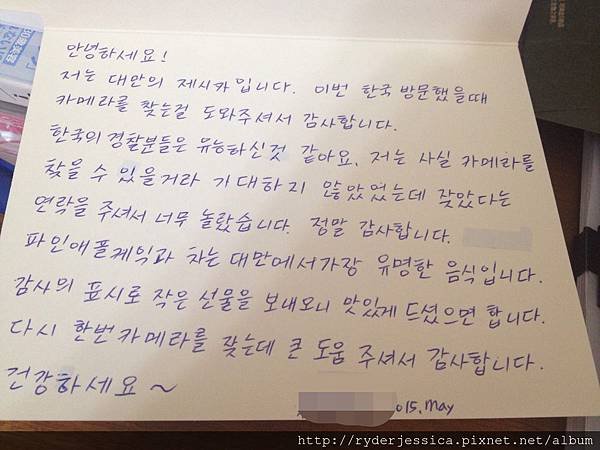 안녕하세요!
저는 대만의 제시카입니다. 이번 한국 방문했을때
카메라를 찾는걸 도와주셔서 감사합니다.
한국의 경찰분들은 유능하신것 같아요. 저는 사실 카메라를
찾을 수 있을거라 가대하지 않았었는데 찾았다는
연락을 주셔서 너무 놀랐습니다. 정말 감사합니다.
파인애플케익과 차는 대만에서가장 유명한 음식입니다.
감사의 표시로 작은 선물을 보내오니 맛있게 드셨으면 합니다.
다시 한번 카메라를 찾는데 큰 도움 주셔서 감사합니다.
건강하세요~
015. May
http://ryderjessica.pixnet.net/album